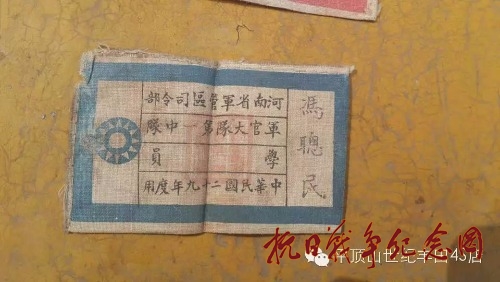 河南省軍管區司令部
軍官大隊第一中隊
學員
中華民國二十九年度用
馮聰民
抗日战争纪念网
平顶山世纪丰田4S店